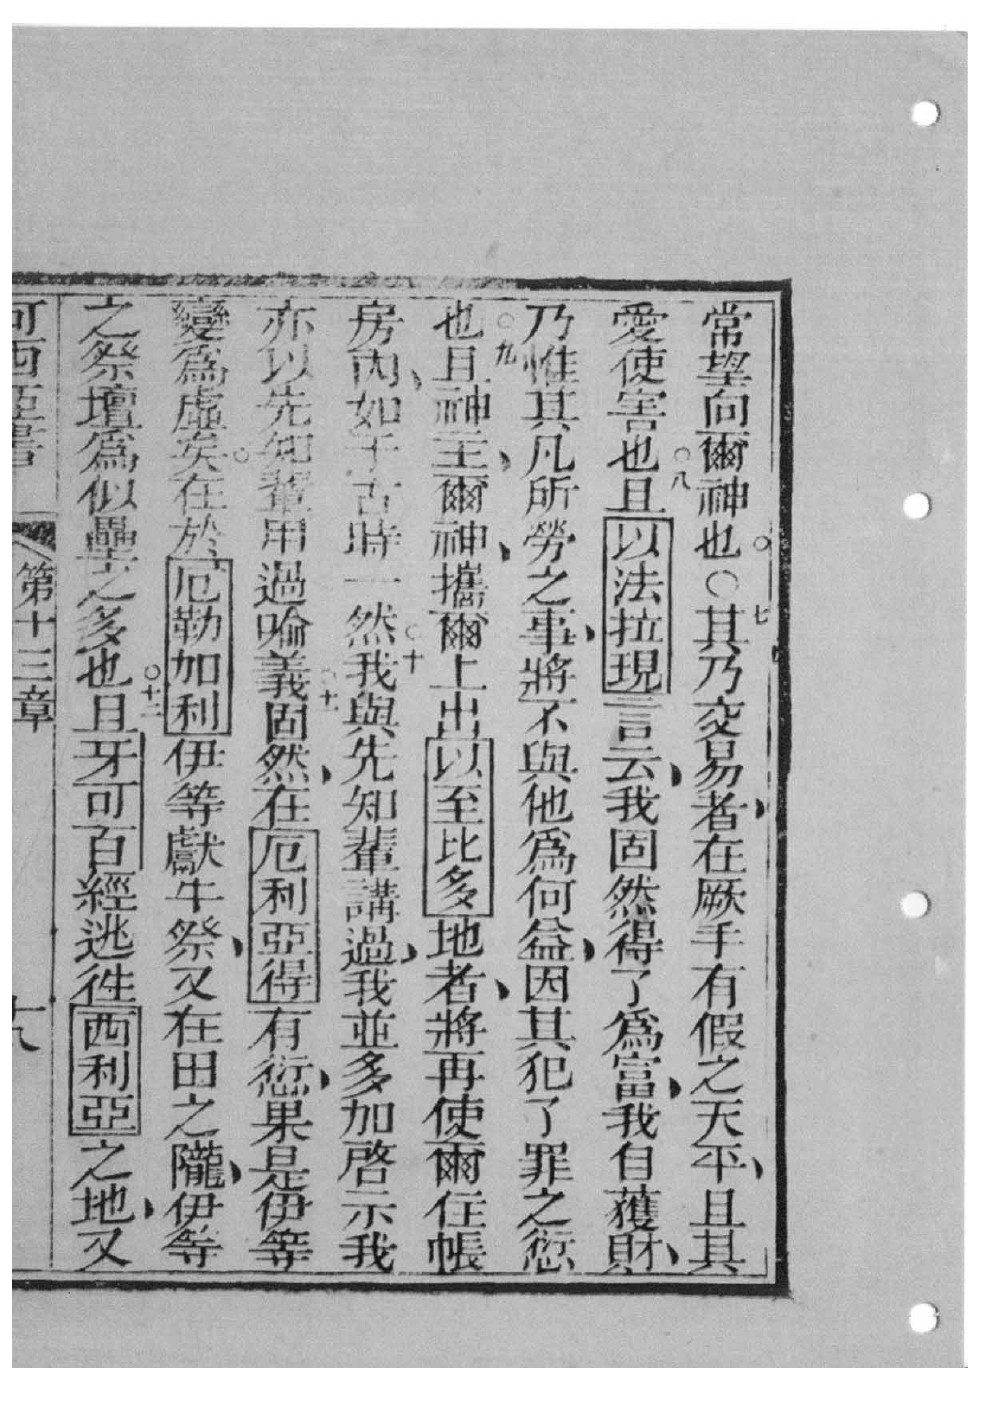 常望向爾神也○其乃交易者在厥手有假之天平且其
七
愛使害也且以法拉現言云我固然得了爲富我自獲財
八
乃惟其凡所勞之事將不與他爲何益因其犯了罪之愆
也且神主爾神攜爾上出以至比多地者將再使爾住帳
九
房內如于古時一然我與先知輩講過我並多加啓示我
十
亦以先知輩用過喻義固然在厄利亞得有愆果是伊等
十一
變爲虛矣在於厄勒加利伊等獻牛祭又在田之隴伊等
之祭壇爲似壘之多也且牙可百經逃徃西利亞之地又
十二
可西亞書 第十三章 十八